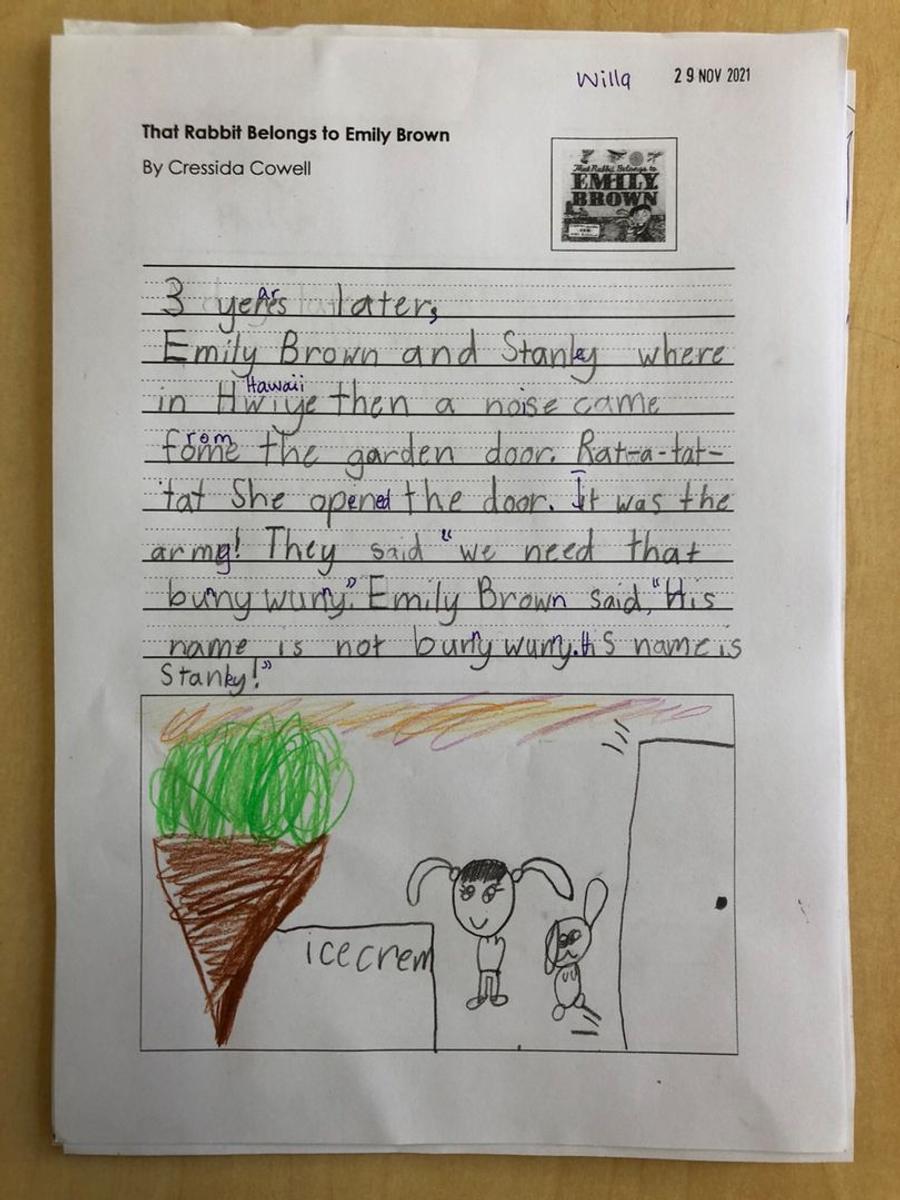 Willa 29 NOV 2021
That Rabbit Belongs to Emily Brown
By Cressida Cowell
That Rabbit Belongs to
EMILY
BROWN
Ar
3 yeres later,
Emily Brown and Stanky where
Hawaii
in Hwiye then a noise came
rom
fome the garden door. Rat-a-tat-
tat She opened the door. It was the
army! They said "we need that
buny wuny." Emily Brown said, "His
name is not buny wuny. His name is
Stanky!"
icecrem